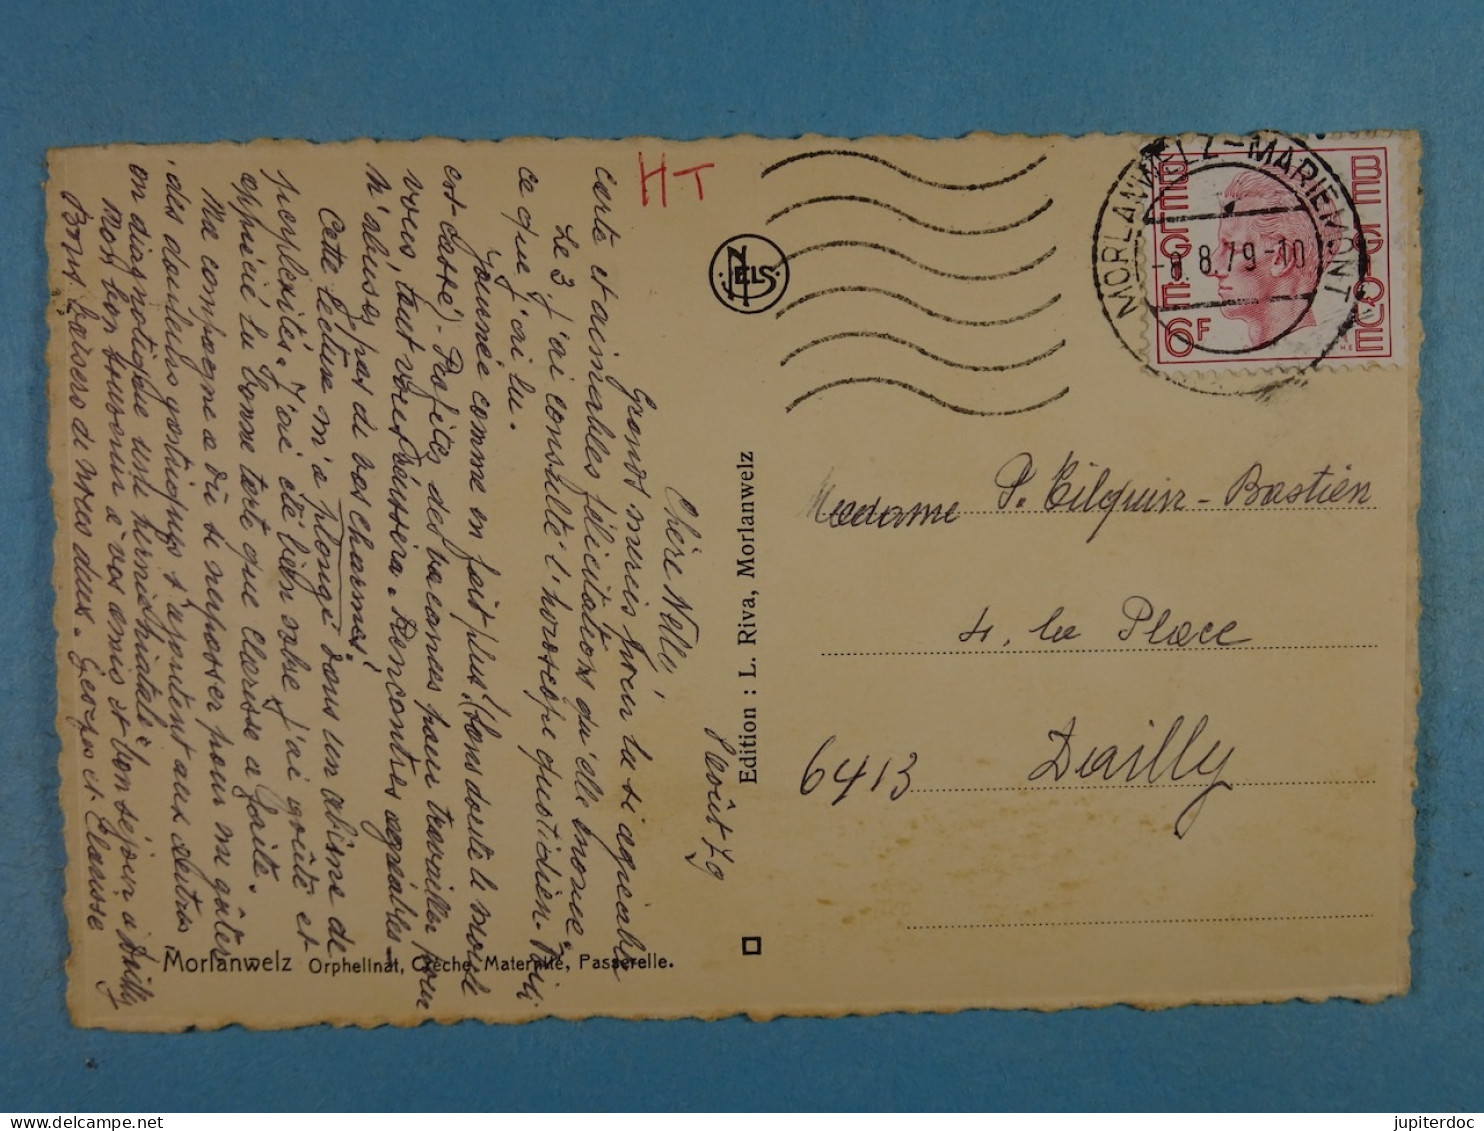 HT
NELS
MORLANWELZ-MARIEMONT
-8.8.79-10
BELGIE
BELGIQUE
6F
Août 79
Chère Nelé,
Grands mercis pour la si agréable
carte et aimables félicitations qu'elle énonce.
Le 3 j'ai consulté l'horoscope quotidien. Voici
ce que j'ai lu.
"Journée comme en fait plus! (Sans doute le moule
est cassé). Profitez des vacances pour travailler pour
vous, tout vous réussira. Rencontres agréables -
N'abusez pas de vos charmes!
Cette lecture m'a plongé dans un abîme de
perplexités. J'ai été bien sage, j'ai goûté et
apprécié la bonne tarte que Clarisse a faite.
Ma compagne a dû se surpasser pour me gâter
des douleurs gastriques s'ajoutent aux autres
on diagnostique une hernie hiatale
Mon bon souvenir à vos amis et bon séjour à Dailly
Bons baisers de nous deux. Georges et Clarisse
Morlanwelz Orphelinat, Crèche, Maternité, Passerelle.
Edition : L. Riva, Morlanwelz
Madame P. Tilquin-Bastien
4, la Place
6413 Dailly
jupiterdoc